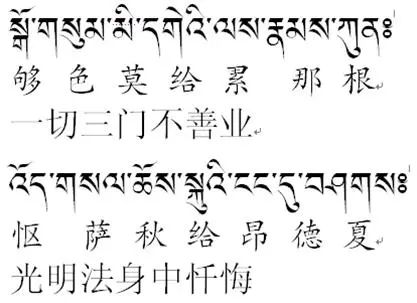 སྒོ་གསུམ་མི་དགེའི་ལས་རྣམས་ཀུནཿ
够 色 莫 给 累 那 根
一切三门不善业
འོད་གསལ་ཆོས་སྐུའི་ངང་དུ་བཤགསཿ
怄 萨 秋 给 昂 德 夏
光明法身中忏悔